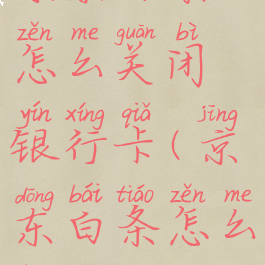 zěn me guān bì
怎么关闭
yín xíng qiǎ jīng
银行卡(京
dōng bái tiáo zěn me
东白条怎么